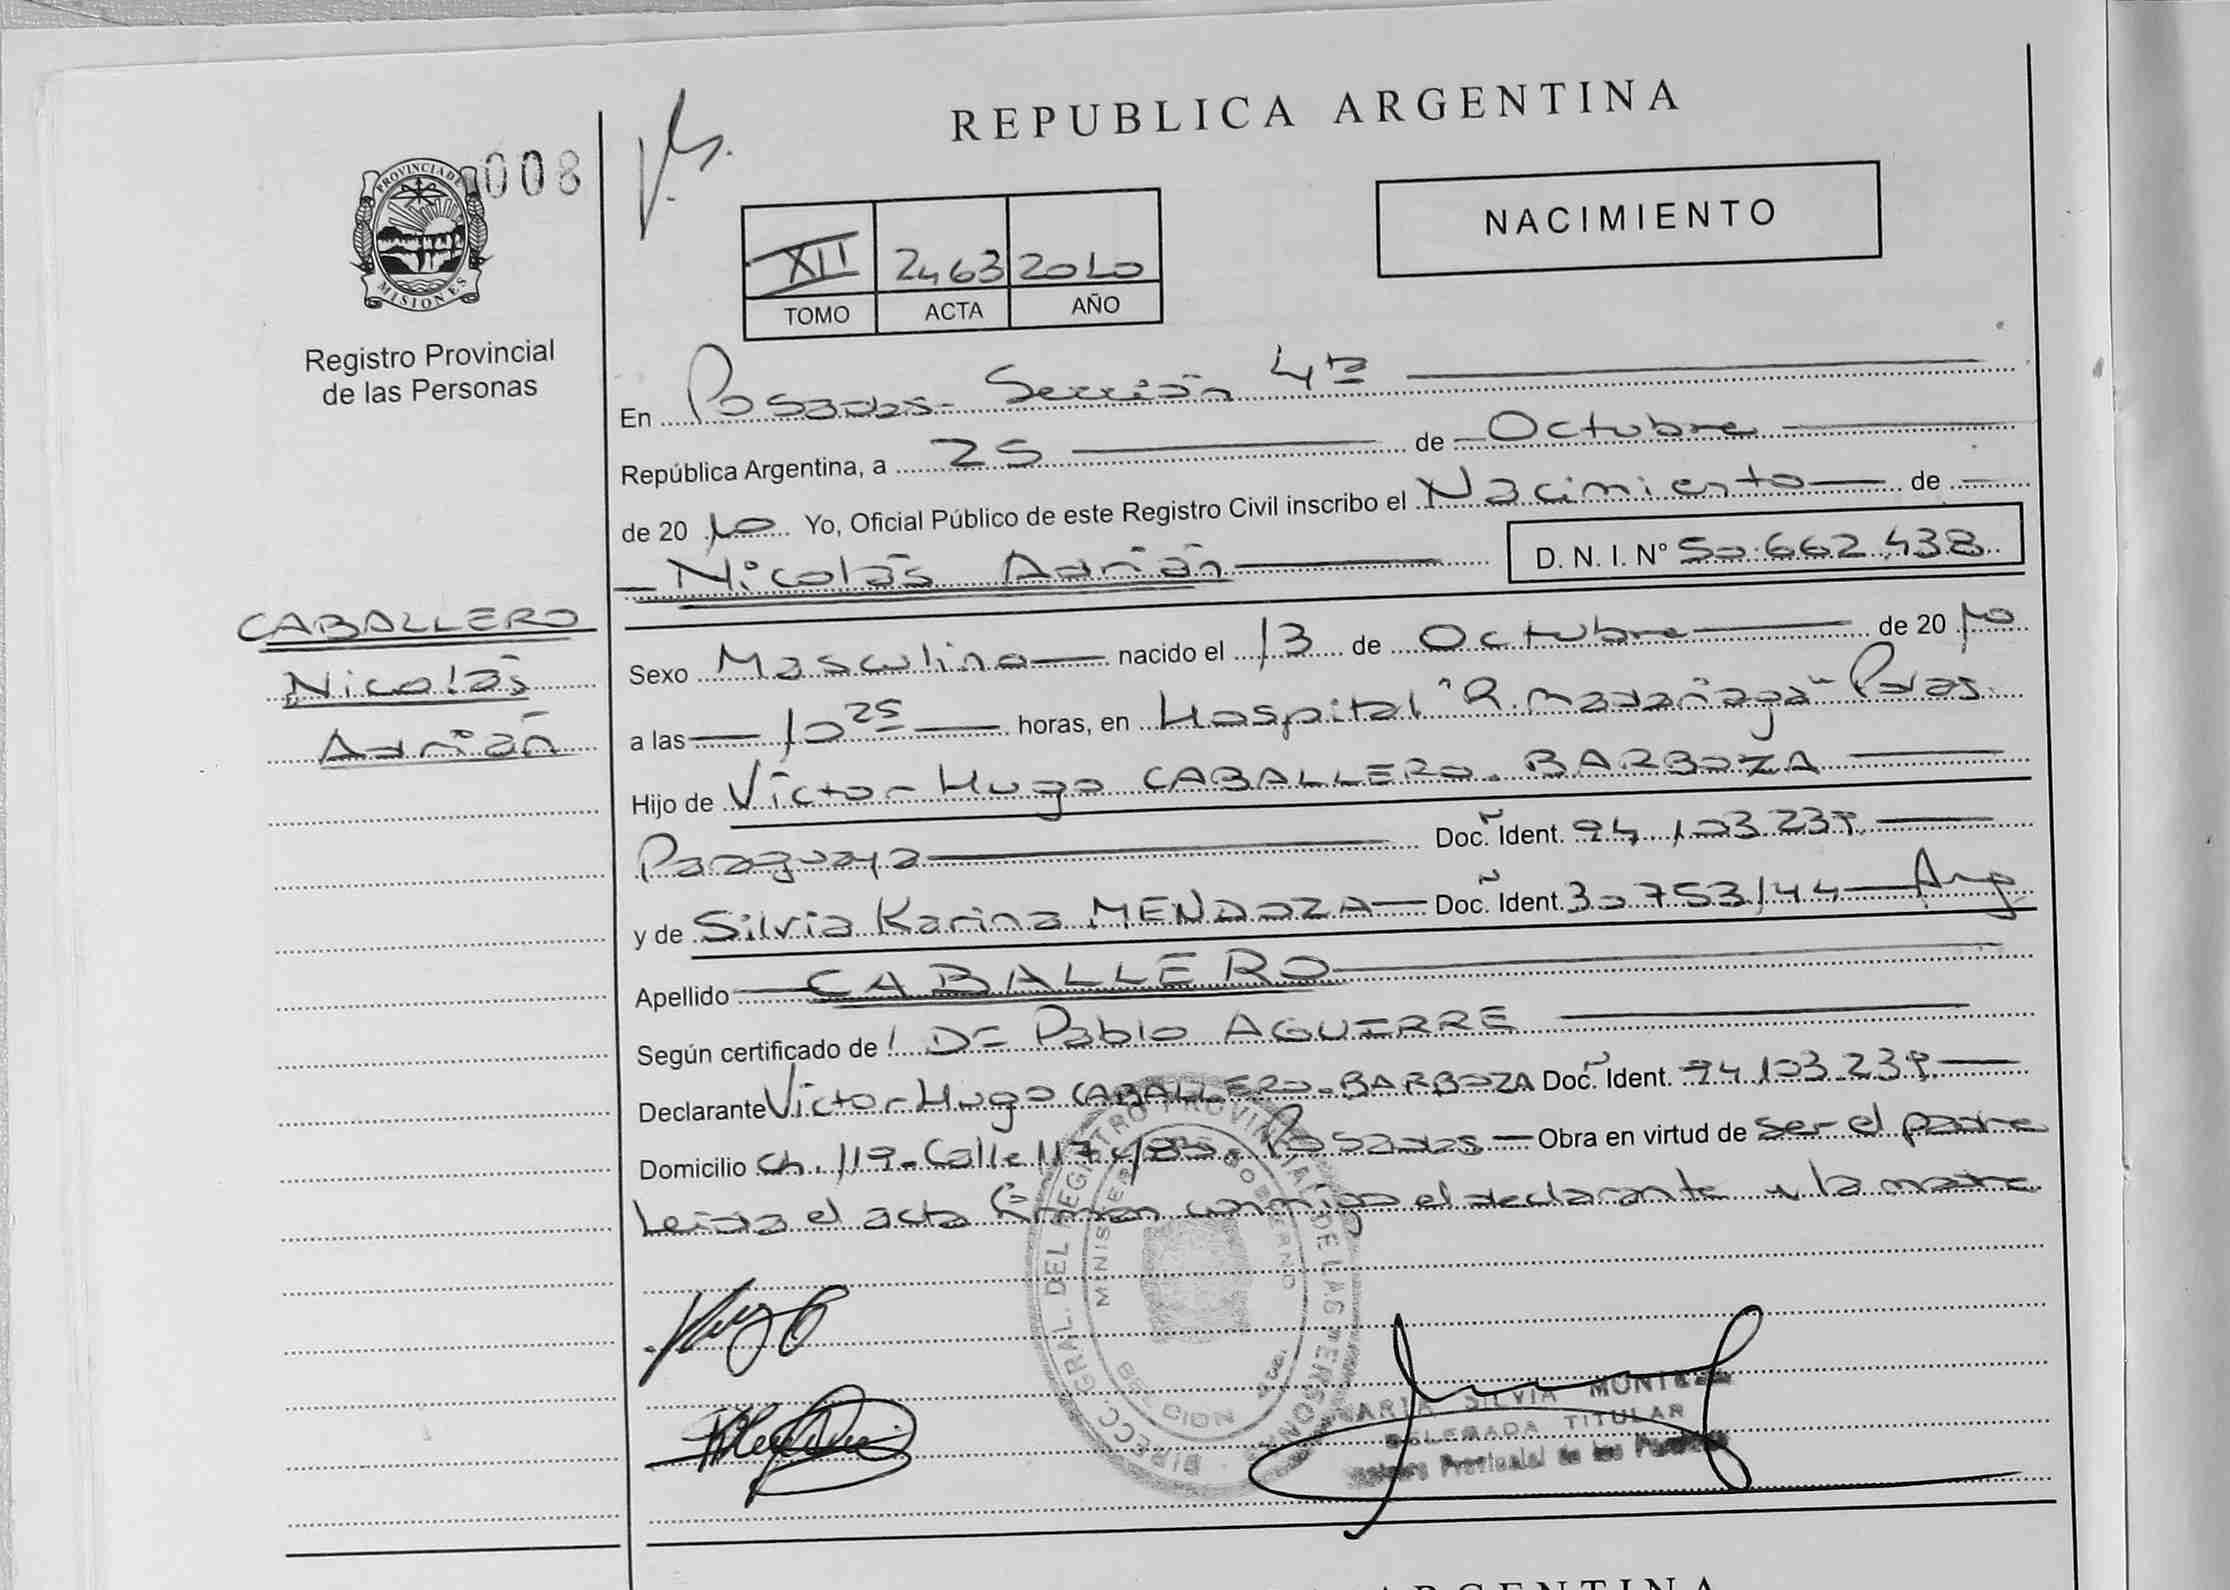 REPUBLICA ARGENTINA
008
PROVINCIA DE
MISIONES
Registro Provincial
de las Personas
NACIMIENTO
XII 2463 2010
TOMO ACTA AÑO
En Posadas - Sección 4ta
República Argentina, a 25 de Octubre
de 2010 Yo, Oficial Público de este Registro Civil inscribo el Nacimiento de
Nicolás Adrián D. N. I. N° 50.662.438
CABALLERO
Nicolás
Adrián
Sexo Masculino nacido el 13 de Octubre de 2010
a las 10 25 horas, en Hospital "R. Madariaga" Pdas.
Hijo de Víctor Hugo CABALLERO BARBOZA
Paraguaya Doc. Ident. 94.103.239
y de Silvia Karina MENDOZA Doc. Ident. 30.753.144 Arg
Apellido CABALLERO
Según certificado de: Dr Pablo AGUERRE
Declarante Víctor Hugo CABALLERO BARBOZA Doc. Ident. 94.103.239
Domicilio Ch. 119 - Calle 117 Posadas Obra en virtud de ser el padre
Leída el acta firman conmigo el declarante y la madre
DIRECC. GRAL. DEL REGISTRO PROVINCIAL DE LAS PERSONAS
MINISTERIO GOBIERNO
MARIA SILVIA
DELEGADA TITULAR
Registro Provincial de las Personas
ARGENTINA